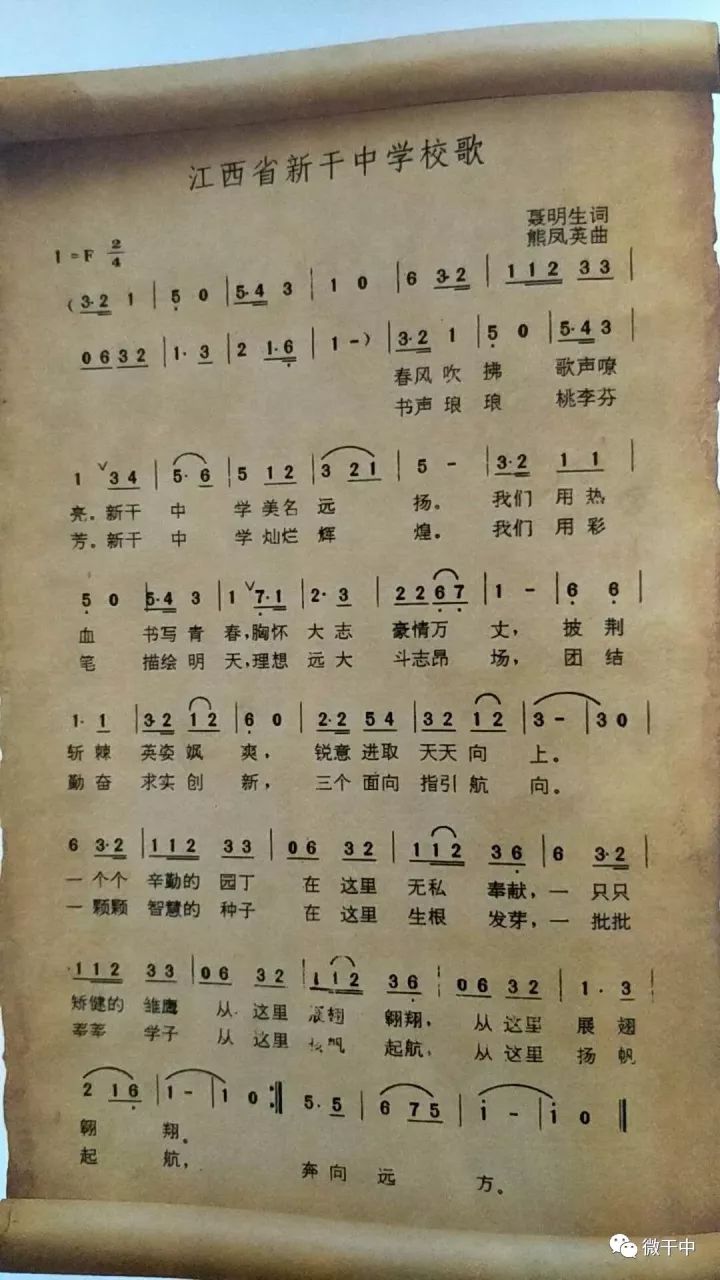 江西省新干中学校歌
聂明生词
熊凤英曲
1=F 2/4
(3·2 1 | 5 0 | 5·4 3 | 1 0 | 6 3·2 | 112 33 |
0632 | 1· 3 | 2 1·6 | 1 -) | 3·2 1 | 5 0 | 5·4 3 |
春风吹 拂 歌声嘹
书声琅 琅 桃李芬
1 ∨34 | 5· 6 | 5 12 | 3 21 | 5 - | 3·2 11 |
亮。新干 中 学美名 远 扬。 我们 用热
芳。新干 中 学灿烂 辉 煌。 我们 用彩
5 0 | 5·4 3 | 1 ∨7·1 | 2· 3 | 2267 | 1 - | 6 6 |
血 书写青 春,胸怀 大志 豪情万 丈, 披荆
笔 描绘明 天,理想 远大 斗志昂 场, 团结
1· 1 | 3·2 12 | 6 0 | 2·2 54 | 32 12 | 3 - | 3 0 |
斩棘 英姿飒 爽, 锐意进取 天天向 上。
勤奋 求实创 新, 三个面向 指引航 向。
6 3·2 | 112 33 | 06 32 | 112 36 | 6 3·2 |
一个个 辛勤的 园丁 在 这里 无私 奉献,一 只只
一颗颗 智慧的 种子 在 这里 生根 发芽,一 批批
112 33 | 06 32 | 112 36 | 06 32 | 1· 3 |
矫健的 雏鹰 从 这里 展翅 翱翔, 从 这里 展翅
莘莘 学子 从 这里 扬帆 起航, 从 这里 扬帆
2 16 | 1 - | 1 0 :‖ 5· 5 | 6 75 | i - | i 0 ‖
翱 翔。
起 航, 奔向 远 方。
微干中